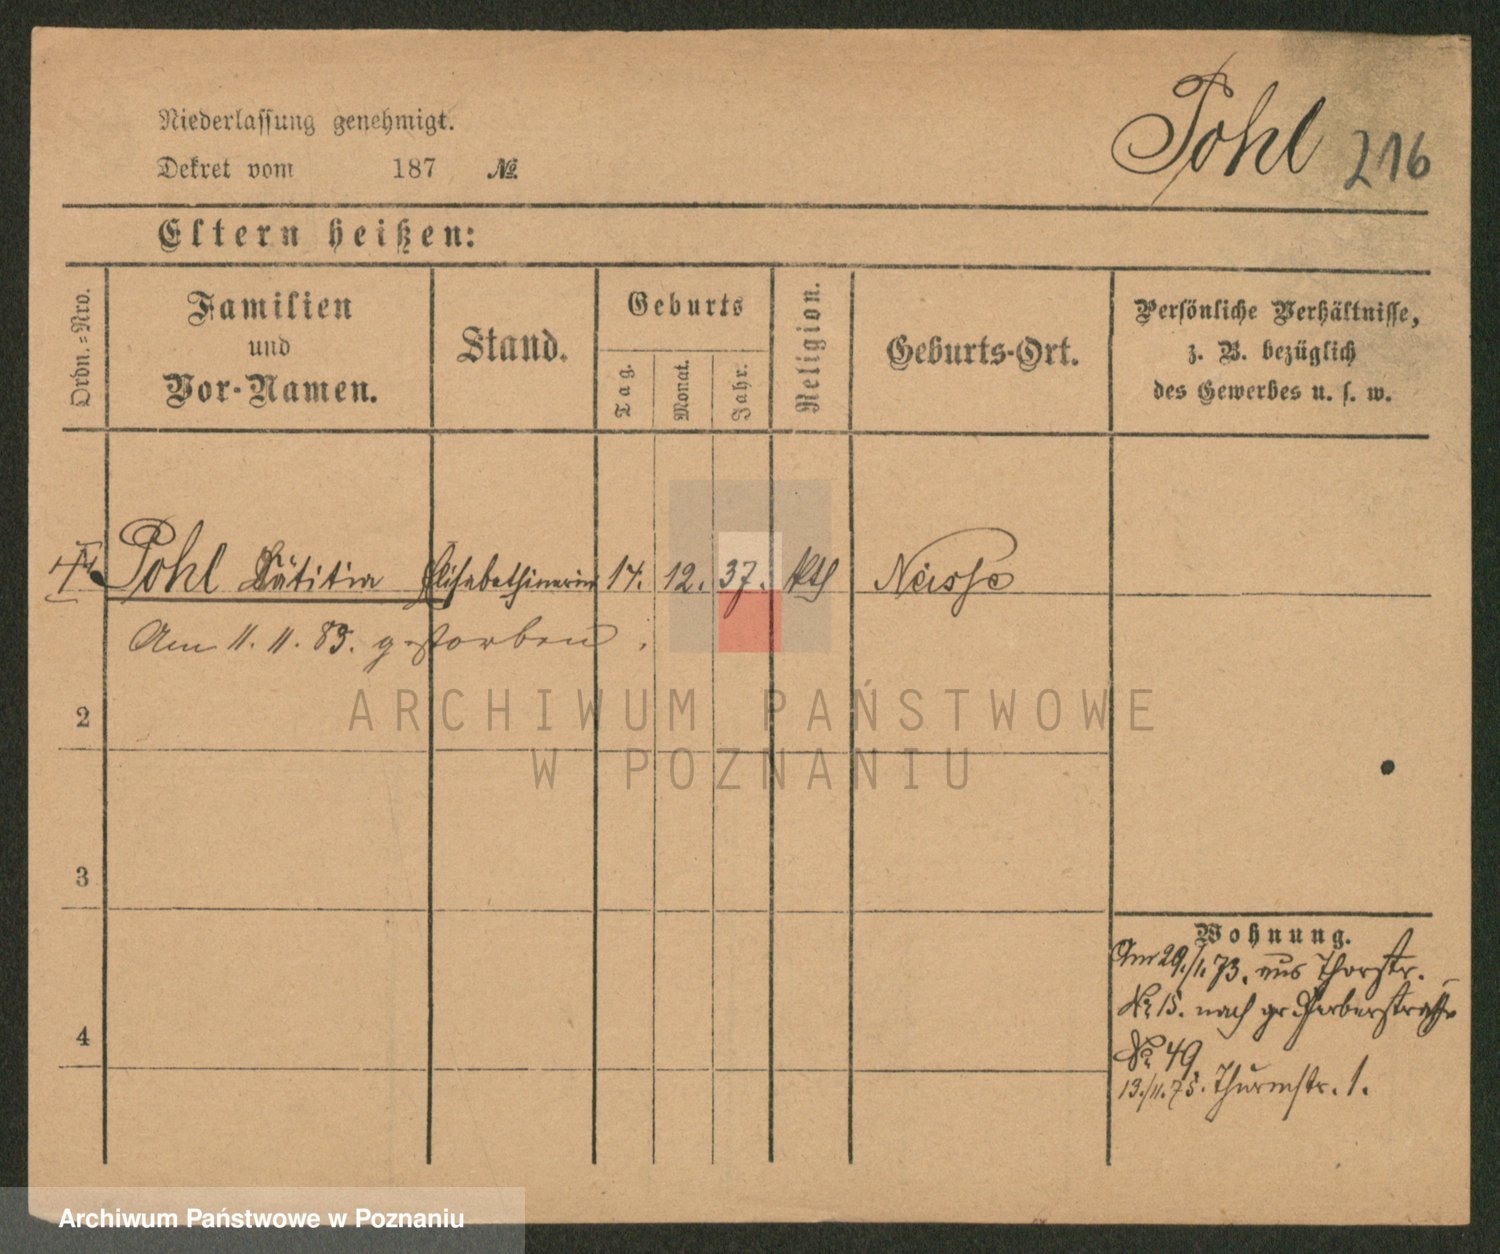 Niederlassung genehmigt.
Pohl 216
Dekret vom 187 №
Eltern heißen:
Ordn.=Nro.
Familien
und
Vor-Namen.
Stand.
Geburts
Tag.
Monat.
Jahr.
Religion.
Geburts-Ort.
Persönliche Verhältnisse,
z. B. bezüglich
des Gewerbes u. s. w.
Pohl Lätitia Elisabethinerin 14. 12. 37. kth Neisse
Am 11. 11. 83. gestorben.
2
3
4
Wohnung.
Am 29./1. 73. aus Thorstr.
№ 15. nach gr Gerberstraße
№ 49
13./11. 75. Thurmstr. 1.
ARCHIWUM PAŃSTWOWE
W POZNANIU
Archiwum Państwowe w Poznaniu